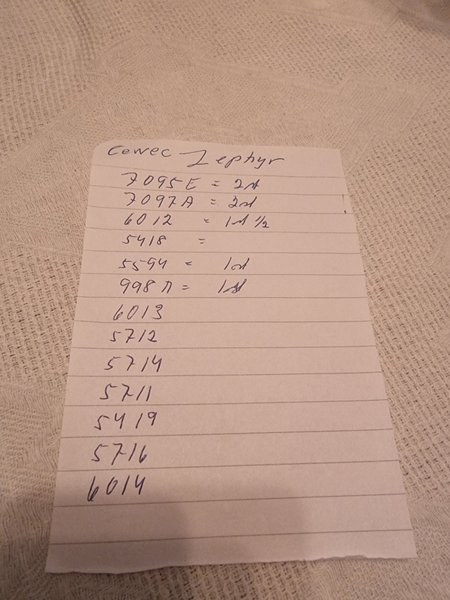 Cewec Zephyr
7095E = 2st
7097A = 2st
6012 = 1st 1/2
5418 =
5594 = 1st
998A = 1st
6013
5712
5714
5711
5419
5716
6014